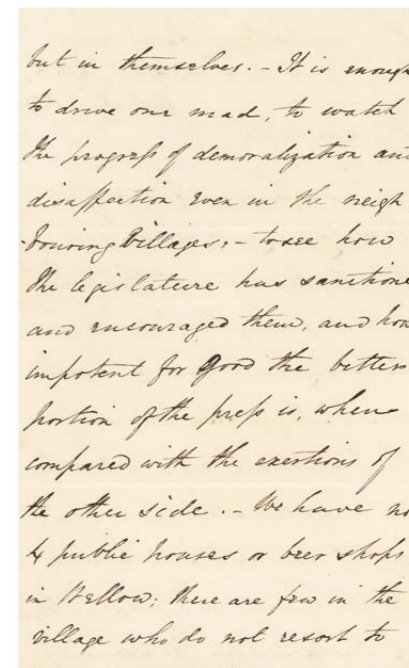 but in themselves. - It is enough
to drive one mad, to watch
the progress of demoralization and
disaffection even in the neigh
-bouring Villages, - to see how
the legislature has sanctione
and encouraged them, and how
impotent for good the better
portion of the press is, when
compared with the exertions of
the other side. - We have no
4 public houses or beer shops
in Wellow; there are few in the
village who do not resort to